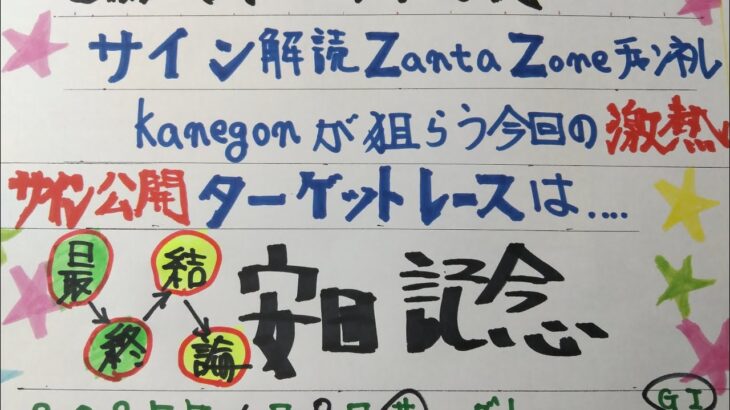 サイン解読ZantaZoneチャンネル
kanegonが狙らう今回の激熱
サイン公開 ターゲットレースは....
最終結論 安田記念
GI